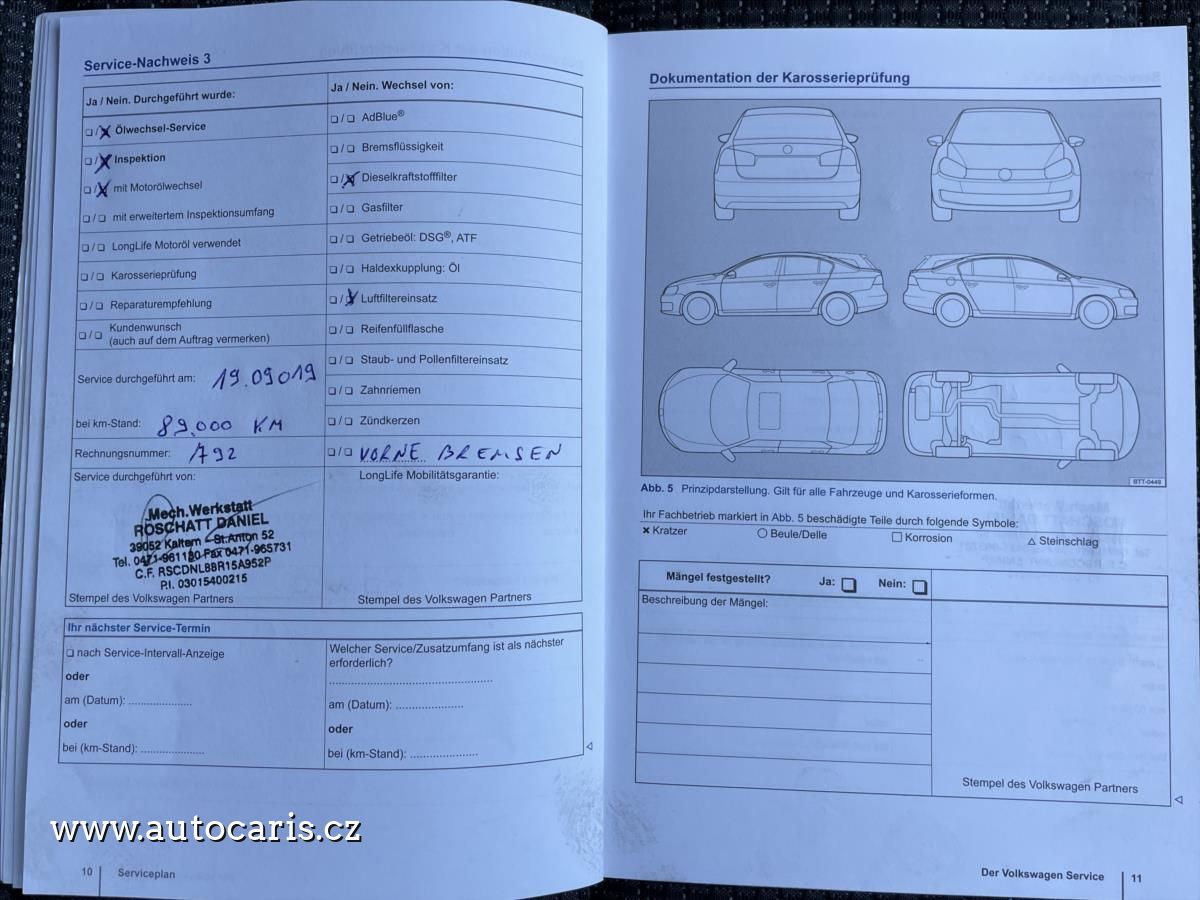 Service-Nachweis 3
Ja / Nein. Durchgeführt wurde:
❏/X Ölwechsel-Service
❏/X Inspektion
❏/X mit Motorölwechsel
❏/❏ mit erweitertem Inspektionsumfang
❏/❏ LongLife Motoröl verwendet
❏/❏ Karosserieprüfung
❏/❏ Reparaturempfehlung
❏/❏ Kundenwunsch
(auch auf dem Auftrag vermerken)
Service durchgeführt am: 19.09019
bei km-Stand: 89.000 KM
Rechnungsnummer: 792
Service durchgeführt von:
Mech.Werkstatt
RÖSCHATT DANIEL
39052 Kaltern - St.Anton 52
Tel. 0471-961180 Fax 0471-965731
C.F. RSCDNL88R15A952P
P.I. 03015400215
Stempel des Volkswagen Partners
Ja / Nein. Wechsel von:
❏/❏ AdBlue®
❏/❏ Bremsflüssigkeit
❏/X Dieselkraftstofffilter
❏/❏ Gasfilter
❏/❏ Getriebeöl: DSG®, ATF
❏/❏ Haldexkupplung: Öl
❏/X Luftfiltereinsatz
❏/❏ Reifenfüllflasche
❏/❏ Staub- und Pollenfiltereinsatz
❏/❏ Zahnriemen
❏/❏ Zündkerzen
❏/❏ VORNE BREMSEN
LongLife Mobilitätsgarantie:
Stempel des Volkswagen Partners
Ihr nächster Service-Termin
❏ nach Service-Intervall-Anzeige
oder
am (Datum): ....................
oder
bei (km-Stand): ....................
Welcher Service/Zusatzumfang ist als nächster
erforderlich?
..................................................
am (Datum): .....................
oder
bei (km-Stand): .....................
10 Serviceplan
Dokumentation der Karosserieprüfung
BTT-0449
Abb. 5 Prinzipdarstellung. Gilt für alle Fahrzeuge und Karosserieformen.
Ihr Fachbetrieb markiert in Abb. 5 beschädigte Teile durch folgende Symbole:
✖ Kratzer ◯ Beule/Delle ☐ Korrosion △ Steinschlag
Mängel festgestellt? Ja: ❏ Nein: ❏
Beschreibung der Mängel:
Stempel des Volkswagen Partners
Der Volkswagen Service 11
www.autocaris.cz